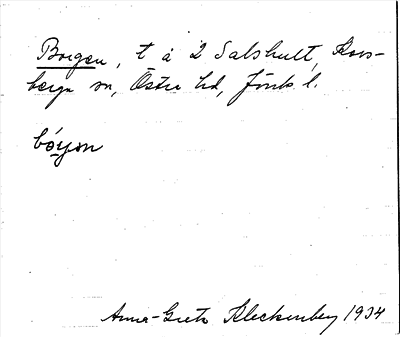 Borgen, t å 2 Salshult, Kors-
berga sn, Östra hd, Jönk. l.
bóryen
Anna-Greta Kleckenberg 1934